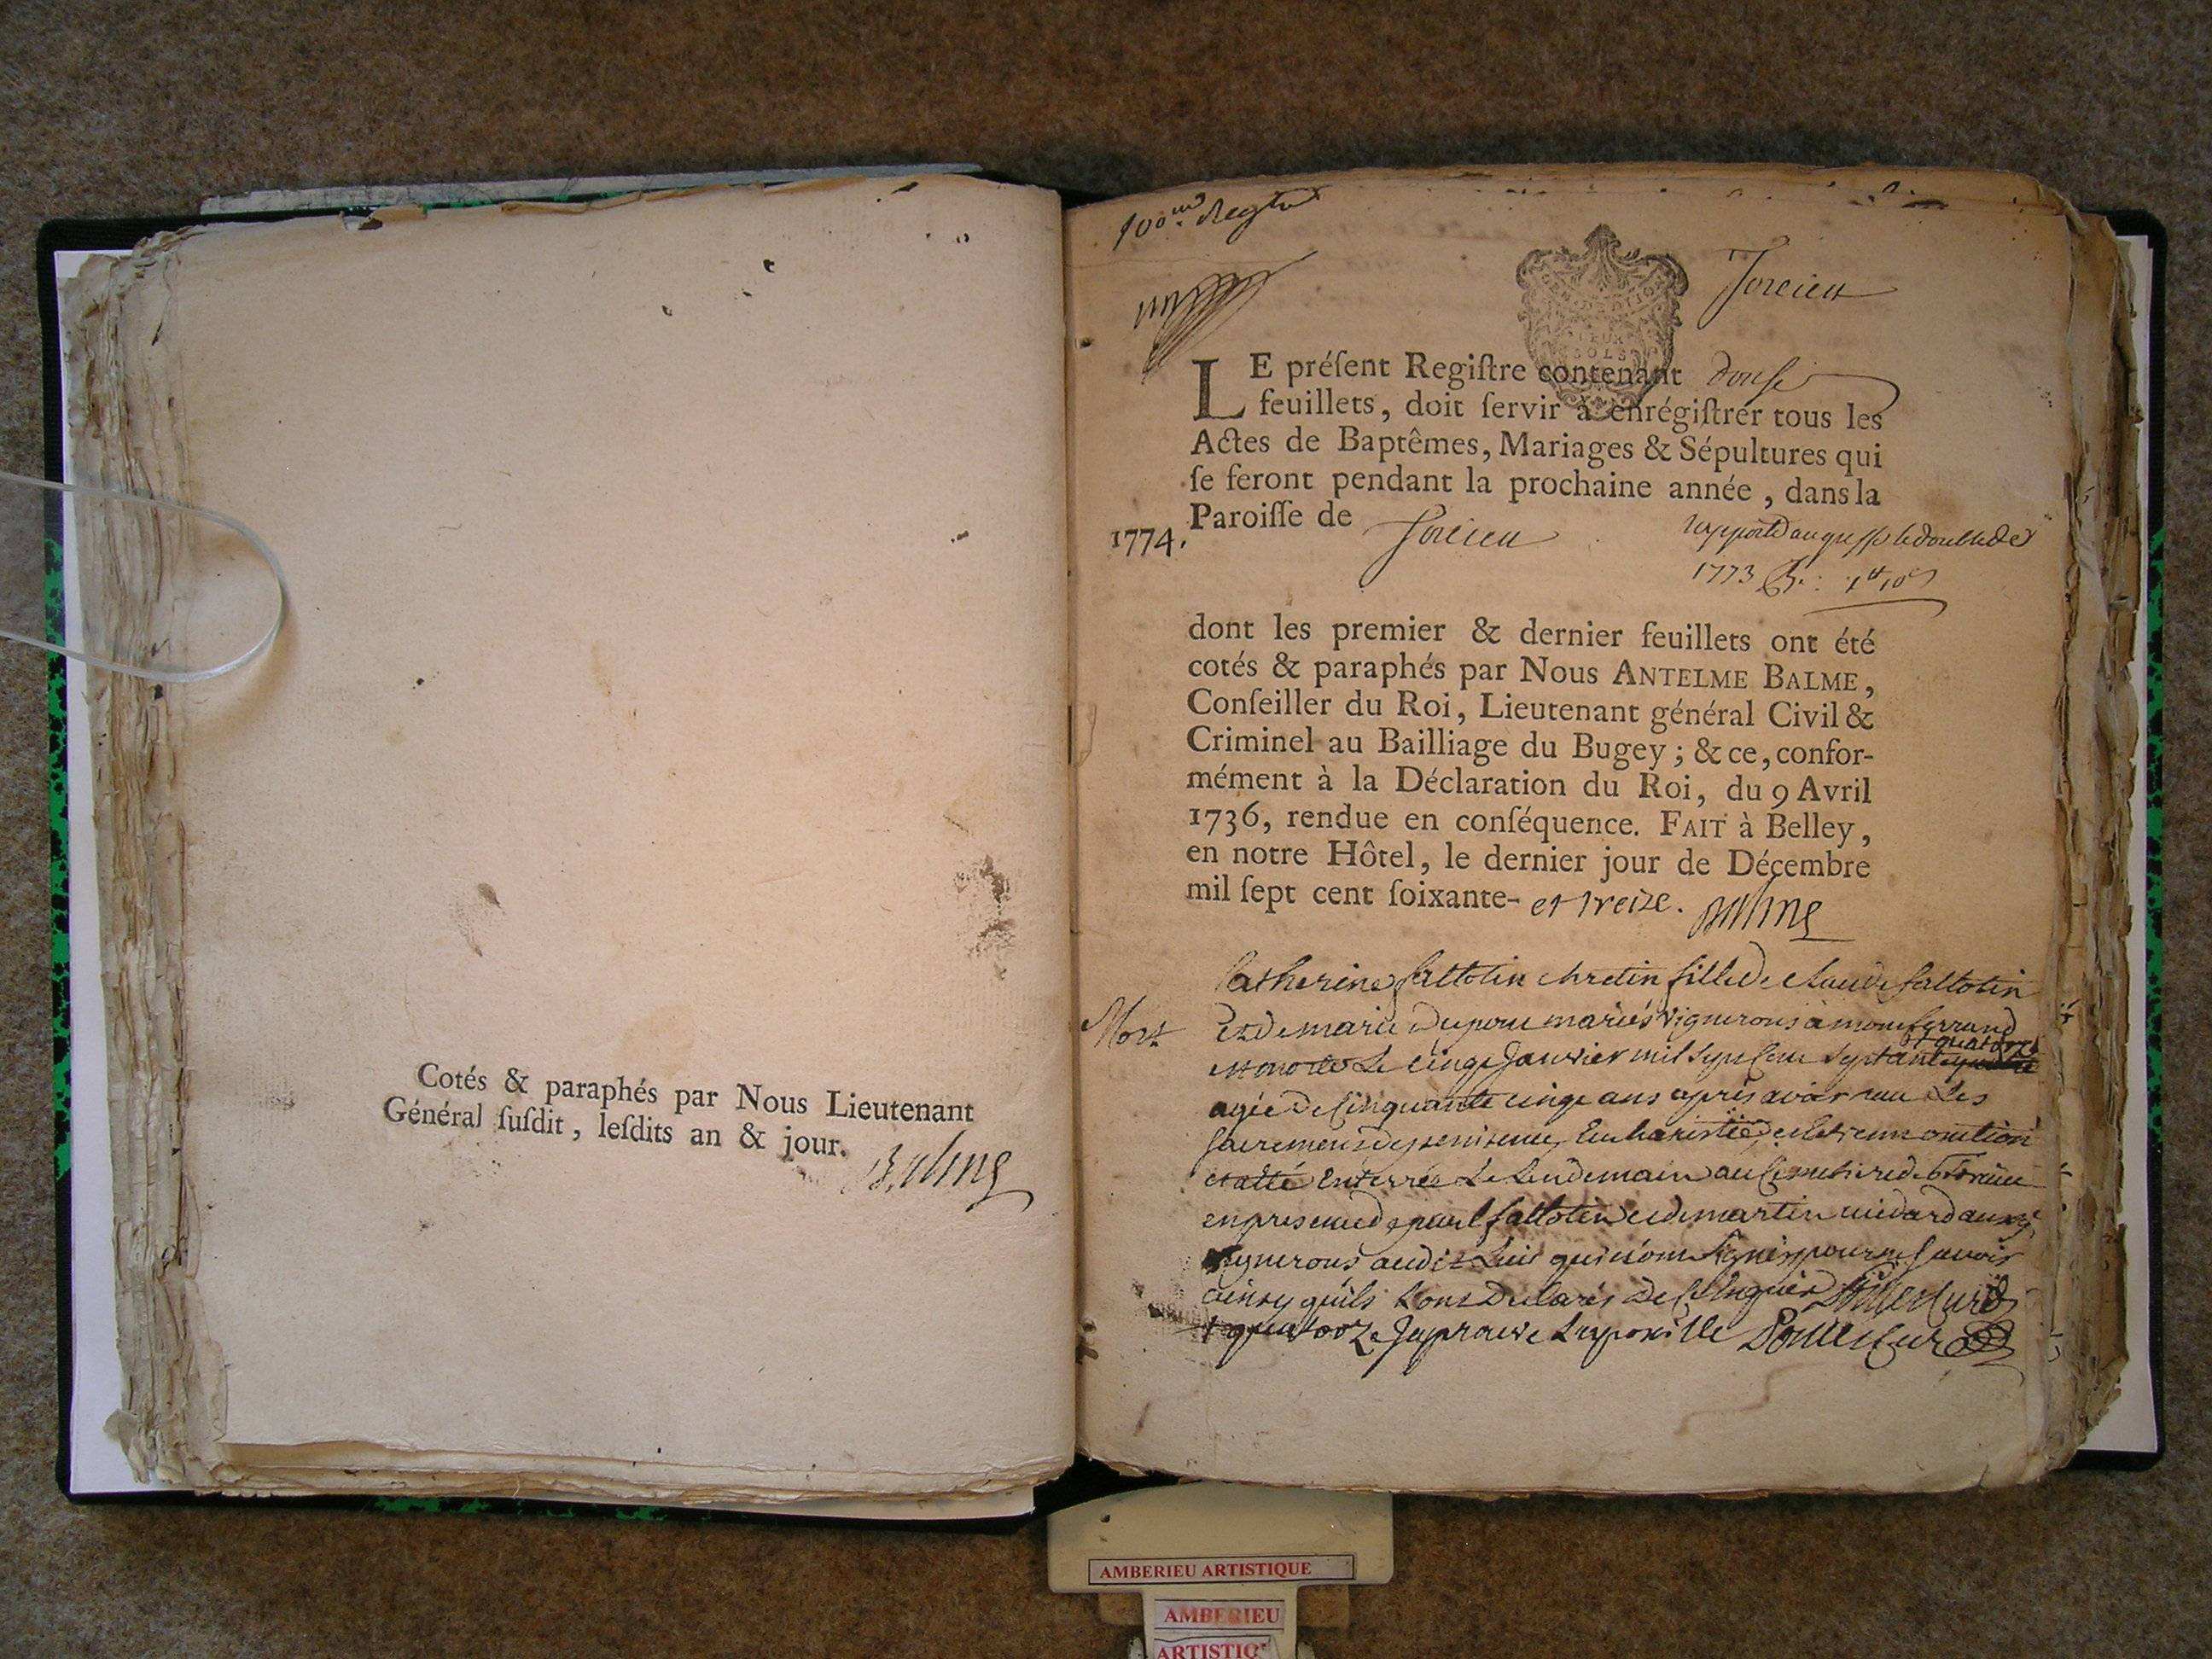 Cotés & paraphés par Nous Lieutenant
Général ſuſdit, leſdits an & jour.
Balme
100me Regtre
Torcieu
LE préſent Regiſtre contenant douſe
feuillets, doit ſervir à enrégiſtrer tous les
Actes de Baptêmes, Mariages & Sépultures qui
ſe feront pendant la prochaine année, dans la
Paroiſſe de Torcieu
1774.
rapporté au greffe le double de
1773
dont les premier & dernier feuillets ont été
cotés & paraphés par Nous ANTELME BALME,
Conſeiller du Roi, Lieutenant général Civil &
Criminel au Bailliage du Bugey; & ce, confor-
mément à la Déclaration du Roi, du 9 Avril
1736, rendue en conſéquence. FAIT à Belley,
en notre Hôtel, le dernier jour de Décembre
mil ſept cent ſoixante- et treize. Balme
Catherine fallotin chretin fille de claude fallotin
Mort
et de marie mariés vignerons à monferrand
et quatorze
le cinqe janvier mil sept cent septante
agée de cinquante cinqe ans après avoir reçu les
sacremens de penitence, Eucharistie, et extreme onction
et atté enterrée le lendemain au cimetiere de torcieu
en presence de paul fallotin et de martin aussy
vignerons audit lieu qui n'ont signés pour ne savoir
ainsy qu'ils l'ont declarés de ce enquis
quatorze japrouve
AMBERIEU ARTISTIQUE
AMBERIEU
ARTISTIQ